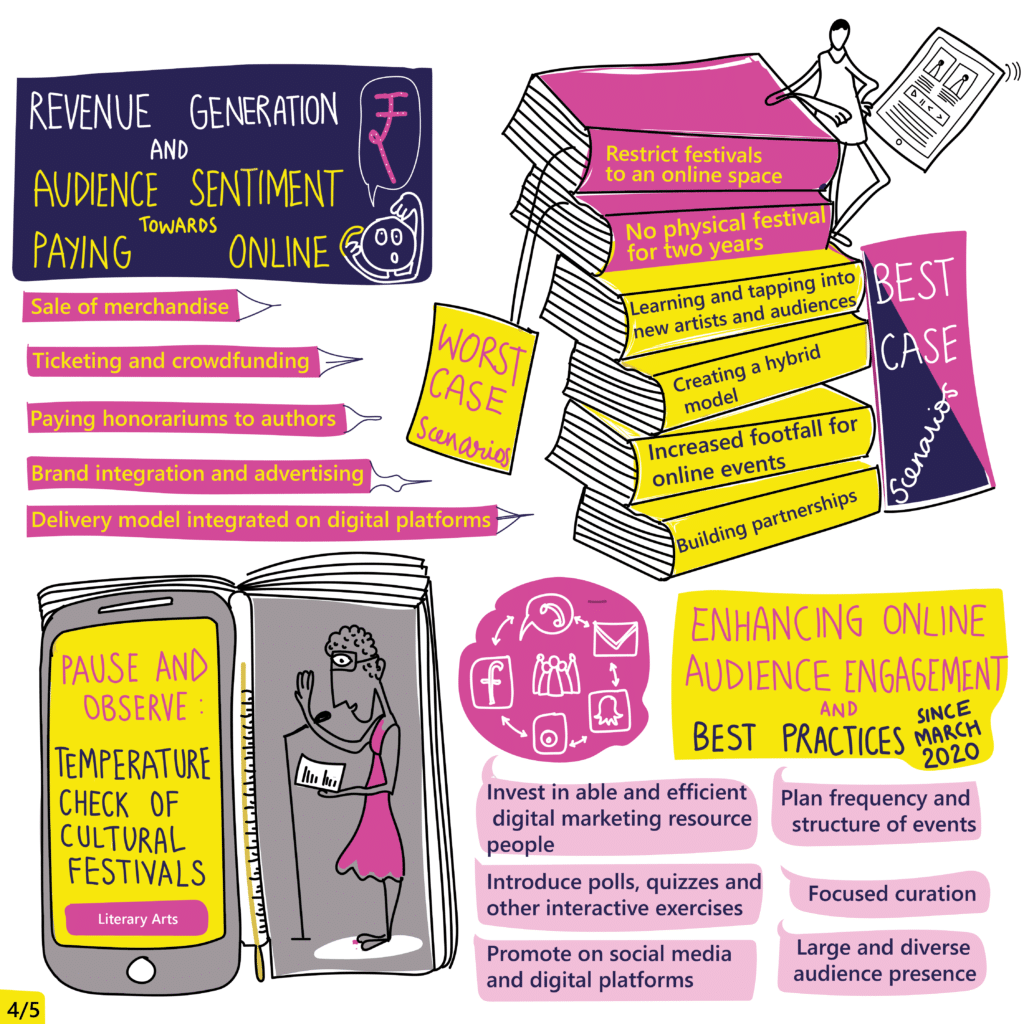 REVENUE GENERATION
AND
AUDIENCE SENTIMENT
TOWARDS
PAYING ONLINE
₹
Sale of merchandise
Ticketing and crowdfunding
Paying honorariums to authors
Brand integration and advertising
Delivery model integrated on digital platforms
WORST
CASE
Scenarios
Restrict festivals
to an online space
No physical festival
for two years
Learning and tapping into
new artists and audiences
Creating a hybrid
model
Increased footfall for
online events
Building partnerships
BEST
CASE
Scenarios
PAUSE AND
OBSERVE :
TEMPERATURE
CHECK OF
CULTURAL
FESTIVALS
Literary Arts
f
ENHANCING ONLINE
AUDIENCE ENGAGEMENT
AND
BEST PRACTICES SINCE
MARCH
2020
Invest in able and efficient
digital marketing resource
people
Introduce polls, quizzes and
other interactive exercises
Promote on social media
and digital platforms
Plan frequency and
structure of events
Focused curation
Large and diverse
audience presence
4/5